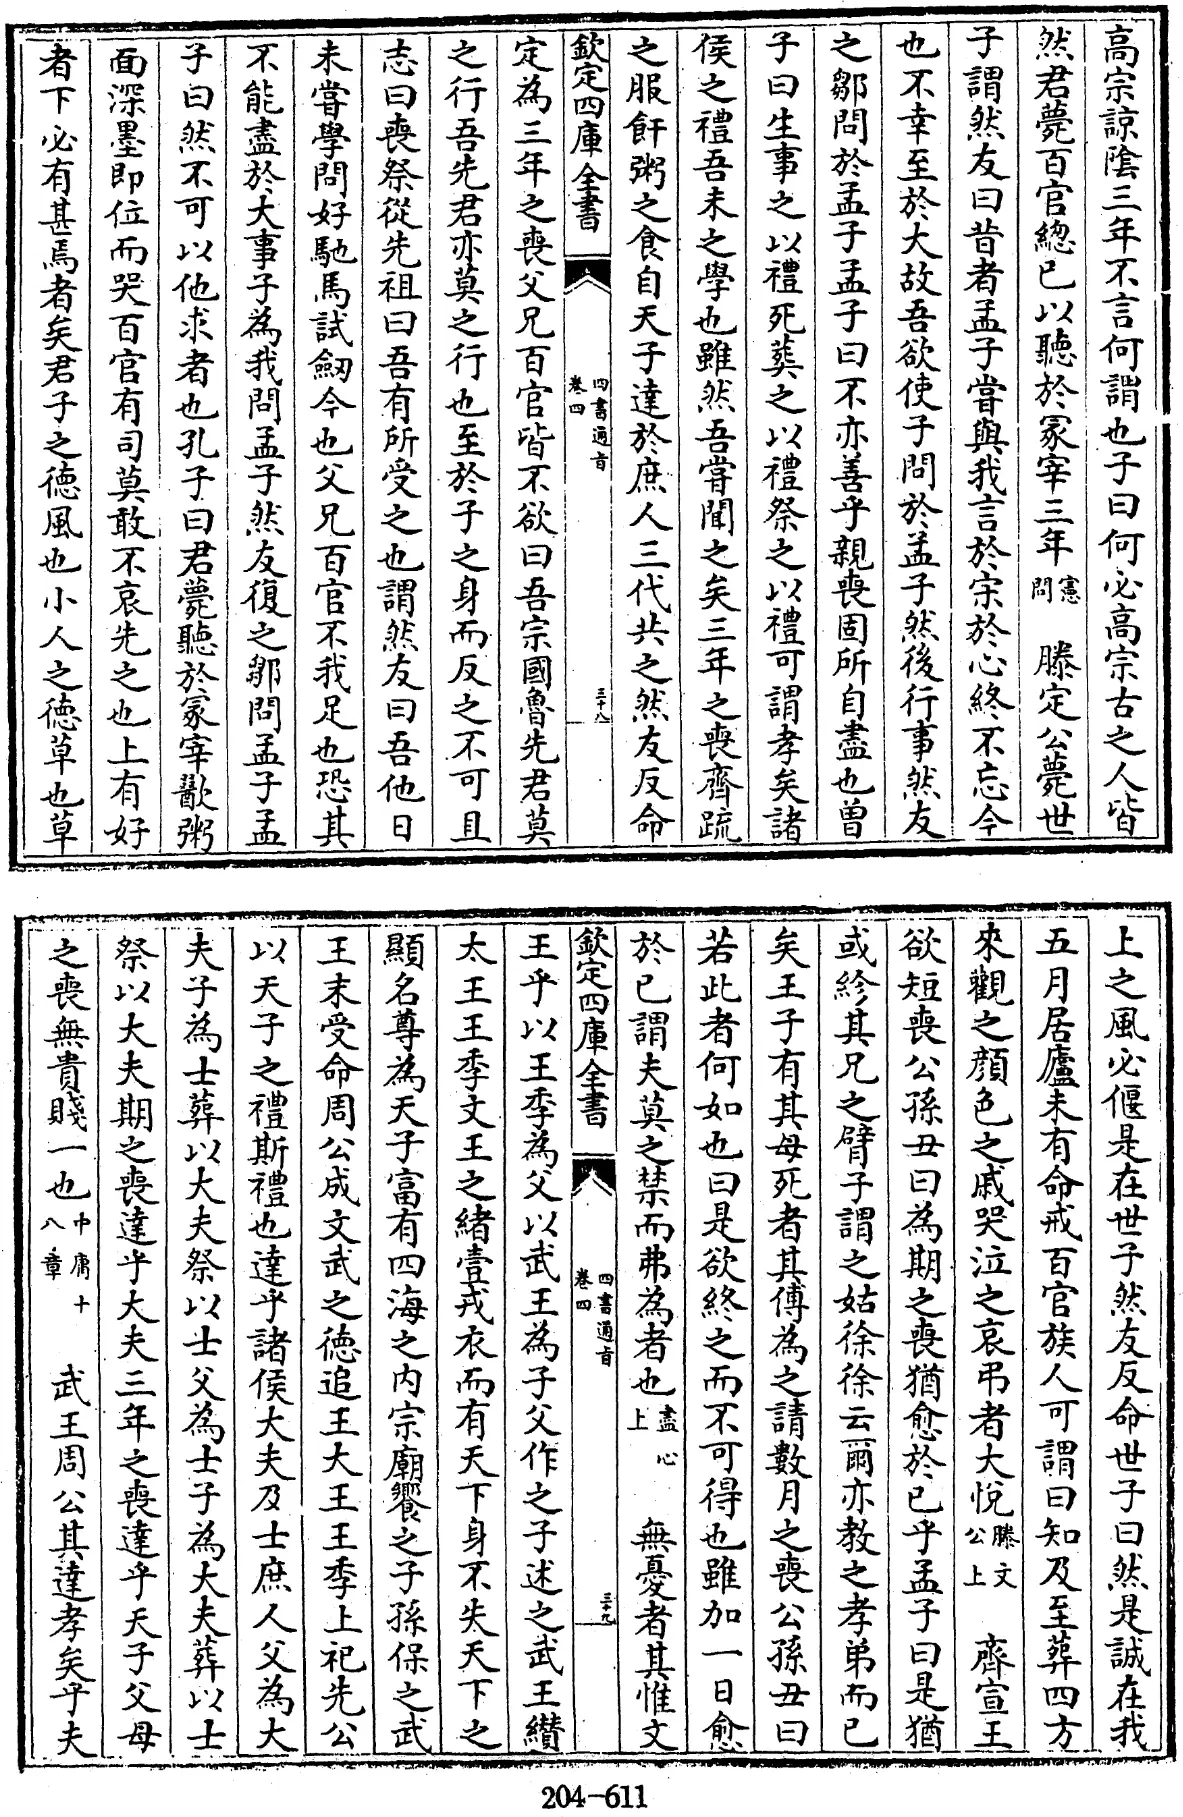 高宗諒陰三年不言何謂也子曰何必高宗古之人皆
然君薨百官總已以聽於冢宰三年憲問 滕定公薨世
子謂然友曰昔者孟子嘗與我言於宋於心終不忘今
也不幸至於大故吾欲使子問於孟子然後行事然友
之鄒問於孟子孟子曰不亦善乎親喪固所自盡也曾
子曰生事之以禮死葬之以禮祭之以禮可謂孝矣諸
侯之禮吾未之學也雖然吾嘗聞之矣三年之喪齊疏
之服飦粥之食自天子達於庶人三代共之然友反命
欽定四庫全書 四書通旨 卷四 三十八
定為三年之喪父兄百官皆不欲曰吾宗國魯先君莫
之行吾先君亦莫之行也至於子之身而反之不可且
志曰喪祭從先祖曰吾有所受之也謂然友曰吾他日
未嘗學問好馳馬試劒今也父兄百官不我足也恐其
不能盡於大事子為我問孟子然友復之鄒問孟子孟
子曰然不可以他求者也孔子曰君薨聽於冢宰歠粥
面深墨即位而哭百官有司莫敢不哀先之也上有好
者下必有甚焉者矣君子之德風也小人之德草也草
上之風必偃是在世子然友反命世子曰然是誠在我
五月居廬未有命戒百官族人可謂曰知及至葬四方
來觀之顔色之戚哭泣之哀弔者大悅滕文公上 齊宣王
欲短喪公孫丑曰為期之喪猶愈於已乎孟子曰是猶
或紾其兄之臂子謂之姑徐徐云爾亦教之孝弟而已
矣王子有其母死者其傅為之請數月之喪公孫丑曰
若此者何如也曰是欲終之而不可得也雖加一日愈
於已謂夫莫之禁而弗為者也盡心上 無憂者其惟文
欽定四庫全書 四書通旨 卷四 三十九
王乎以王季為父以武王為子父作之子述之武王纘
太王王季文王之緒壹戎衣而有天下身不失天下之
顯名尊為天子富有四海之内宗廟饗之子孫保之武
王末受命周公成文武之德追王大王王季上祀先公
以天子之禮斯禮也達乎諸侯大夫及士庶人父為大
夫子為士葬以大夫祭以士父為士子為大夫葬以士
祭以大夫期之喪達乎大夫三年之喪達乎天子父母
之喪無貴賤一也中庸十八章 武王周公其達孝矣乎夫
204-611